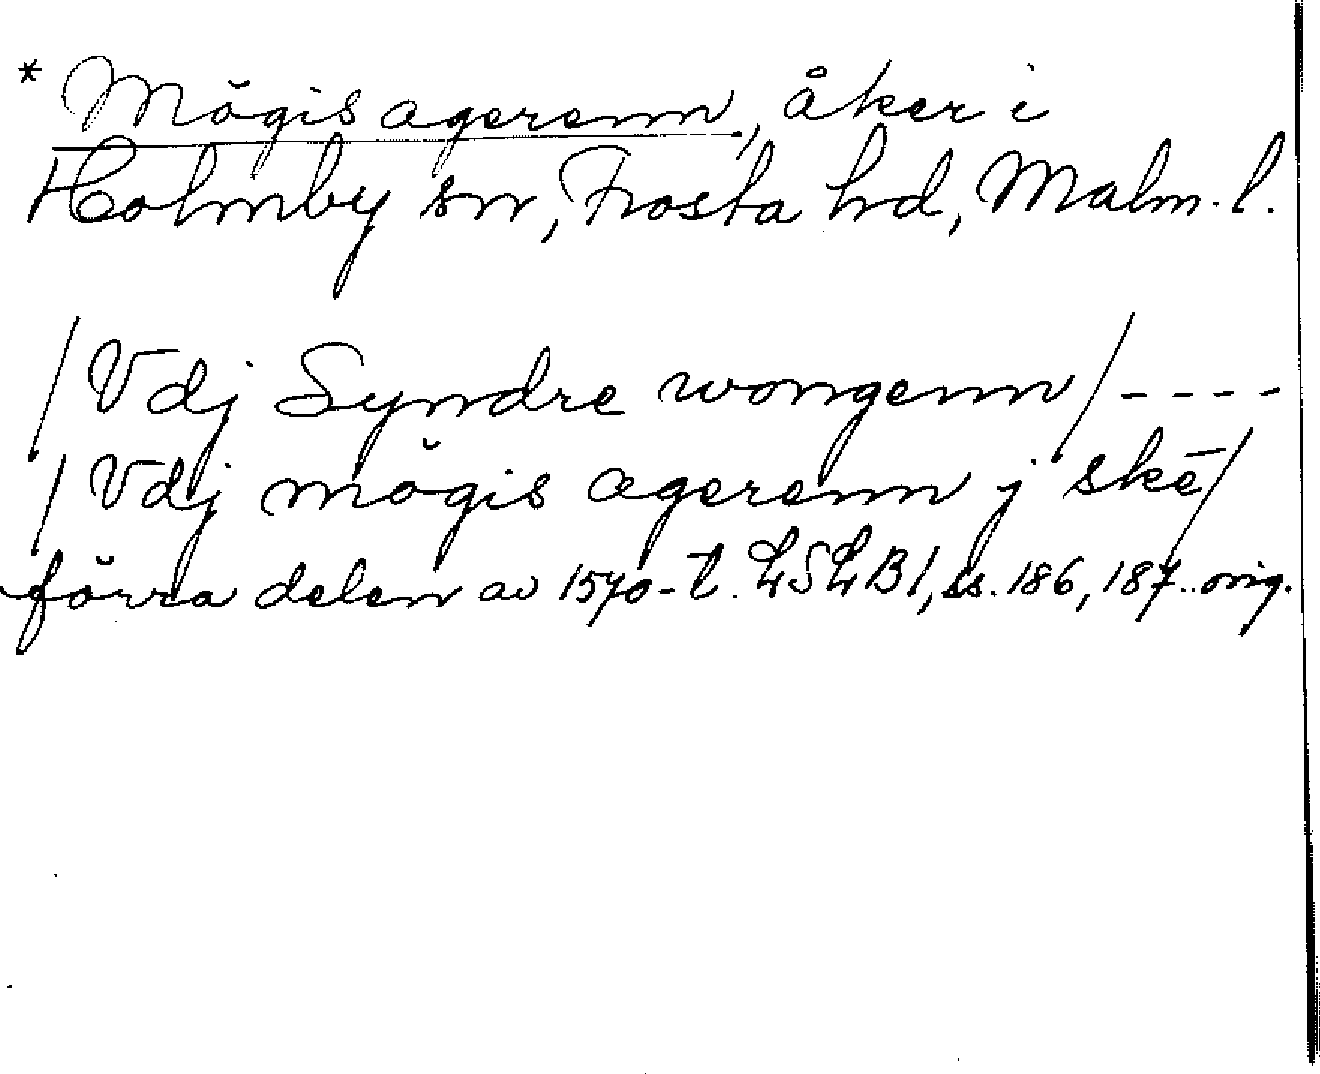 * Mŏgis agerenn, åker i
Holmby sn, Frosta hd, Malm. l.
/Vdj Syndre wongenn/ - - - -
/Vdj mŏgis agerenn j skē/
förra delen av 1570-t. LSLB1, ss. 186, 187. orig.